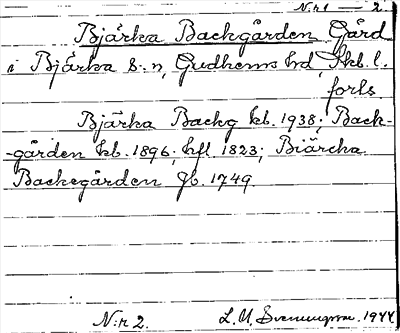 N:r 1 — 2.
Bjärka Backgården Gård
i Bjärka s:n, Gudhems hd, Skb. l.
forts
Bjärka Backg kb. 1938; Back-
-gården kb. 1896; hfl 1823; Biärcka
Backegården Jb. 1749.
N:r 2. L. M. Svenungsson. 1944